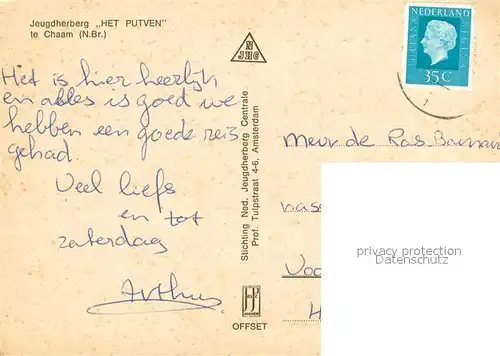 Jeugdherberg „HET PUTVEN"
te Chaam (N.Br.)
N
JHC
NEDERLAND
JULIANA
REGINA
35 C
Het is hier heerlijk
en alles is goed we
hebben een goede reis
gehad
Veel liefs
en tot
zaterdag
Arthur
Stichting Ned. Jeugdherberg Centrale
Prof. Tulpstraat 4-6, Amsterdam
OFFSET
Mevr de Ras
privacy protection
Datenschutz